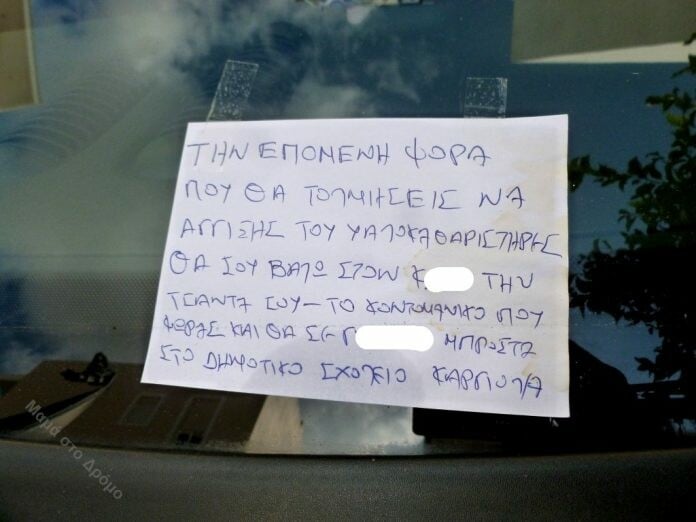 ΤΗΝ ΕΠΟΝΕΝΗ ΦΟΡΑ
ΠΟΥ ΘΑ ΤΟΛΜΗΣΕΙΣ ΝΑ
ΑΓΓΙΣΗΣ ΤΟΥ ΥΑΛΟΚΑΘΑΡΙΣΤΗΡΕΣ
ΘΑ ΣΟΥ ΒΑΛΩ ΣΤΟΝ Κ ΤΗΝ
ΤΣΑΝΤΑ ΣΟΥ - ΤΟ ΚΟΝΤΟΜΑΝΙΚΟ ΠΟΥ
ΦΟΡΑΣ ΚΑΙ ΘΑ ΣΕ Γ ΜΠΡΟΣΤΑ
ΣΤΟ ΔΗΜΟΤΙΚΟ ΣΧΟΛΕΙΟ ΚΑΡΓΙΟΛΑ
Μαμά στο Δρόμο